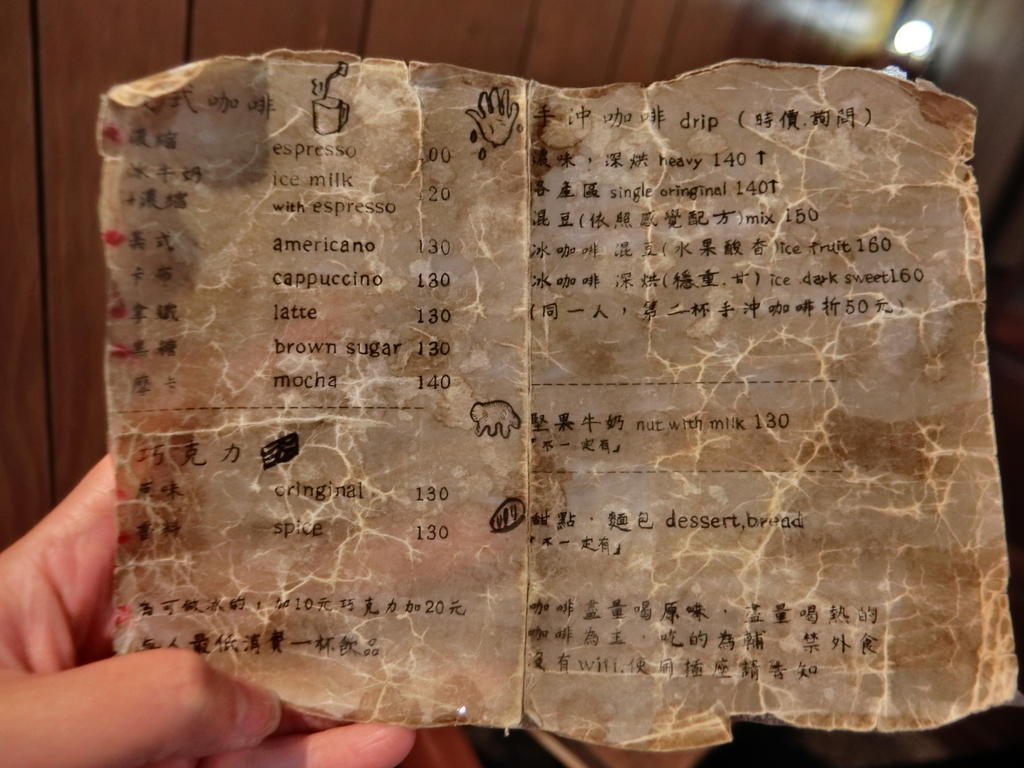 式咖啡
濃縮 espresso 00
冰牛奶 ice milk
+濃縮 with espresso 20
美式 americano 130
卡布 cappuccino 130
拿鐵 latte 130
黑糖 brown sugar 130
摩卡 mocha 140
巧克力
原味 oringinal 130
香料 spice 130
為可做冰的，加10元巧克力加20元
每人最低消費一杯飲品
手沖咖啡 drip (時價.詢問)
濃味，深烘 heavy 140↑
各產區 single oringinal 140↑
混豆(依照感覺配方)mix 150
冰咖啡 混豆(水果酸香)ice fruit 160
冰咖啡 深烘(穩重.甘) ice dark sweet160
(同一人，第二杯手沖咖啡折50元)
堅果牛奶 nut with milk 130
『不一定有』
甜點．麵包 dessert,bread
『不一定有』
咖啡盡量喝原味，盡量喝熱的
咖啡為主，吃的為輔 禁外食
沒有wifi.使用插座請告知